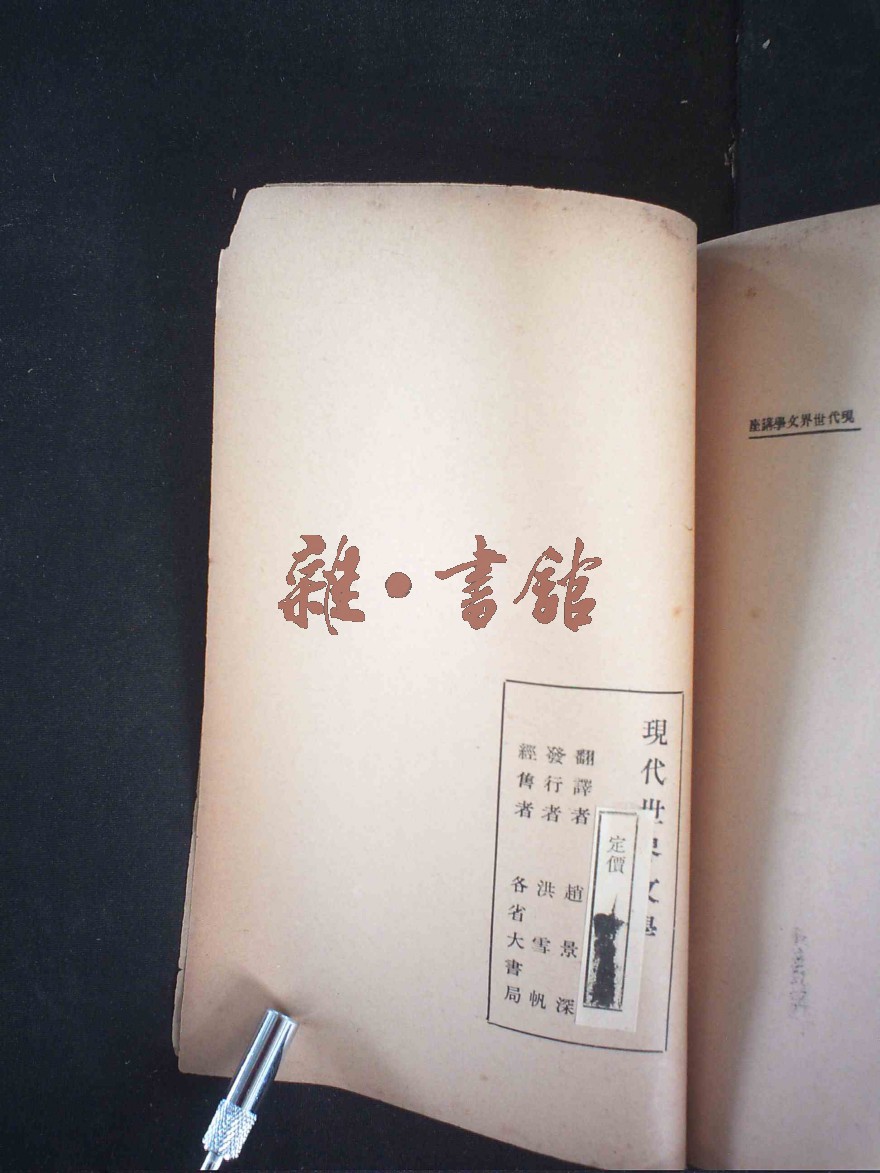 現代世界文學講座
雜·書館
現代世界文學
翻譯者 趙景深
發行者 洪雪帆
經售者 各省大書局
定價